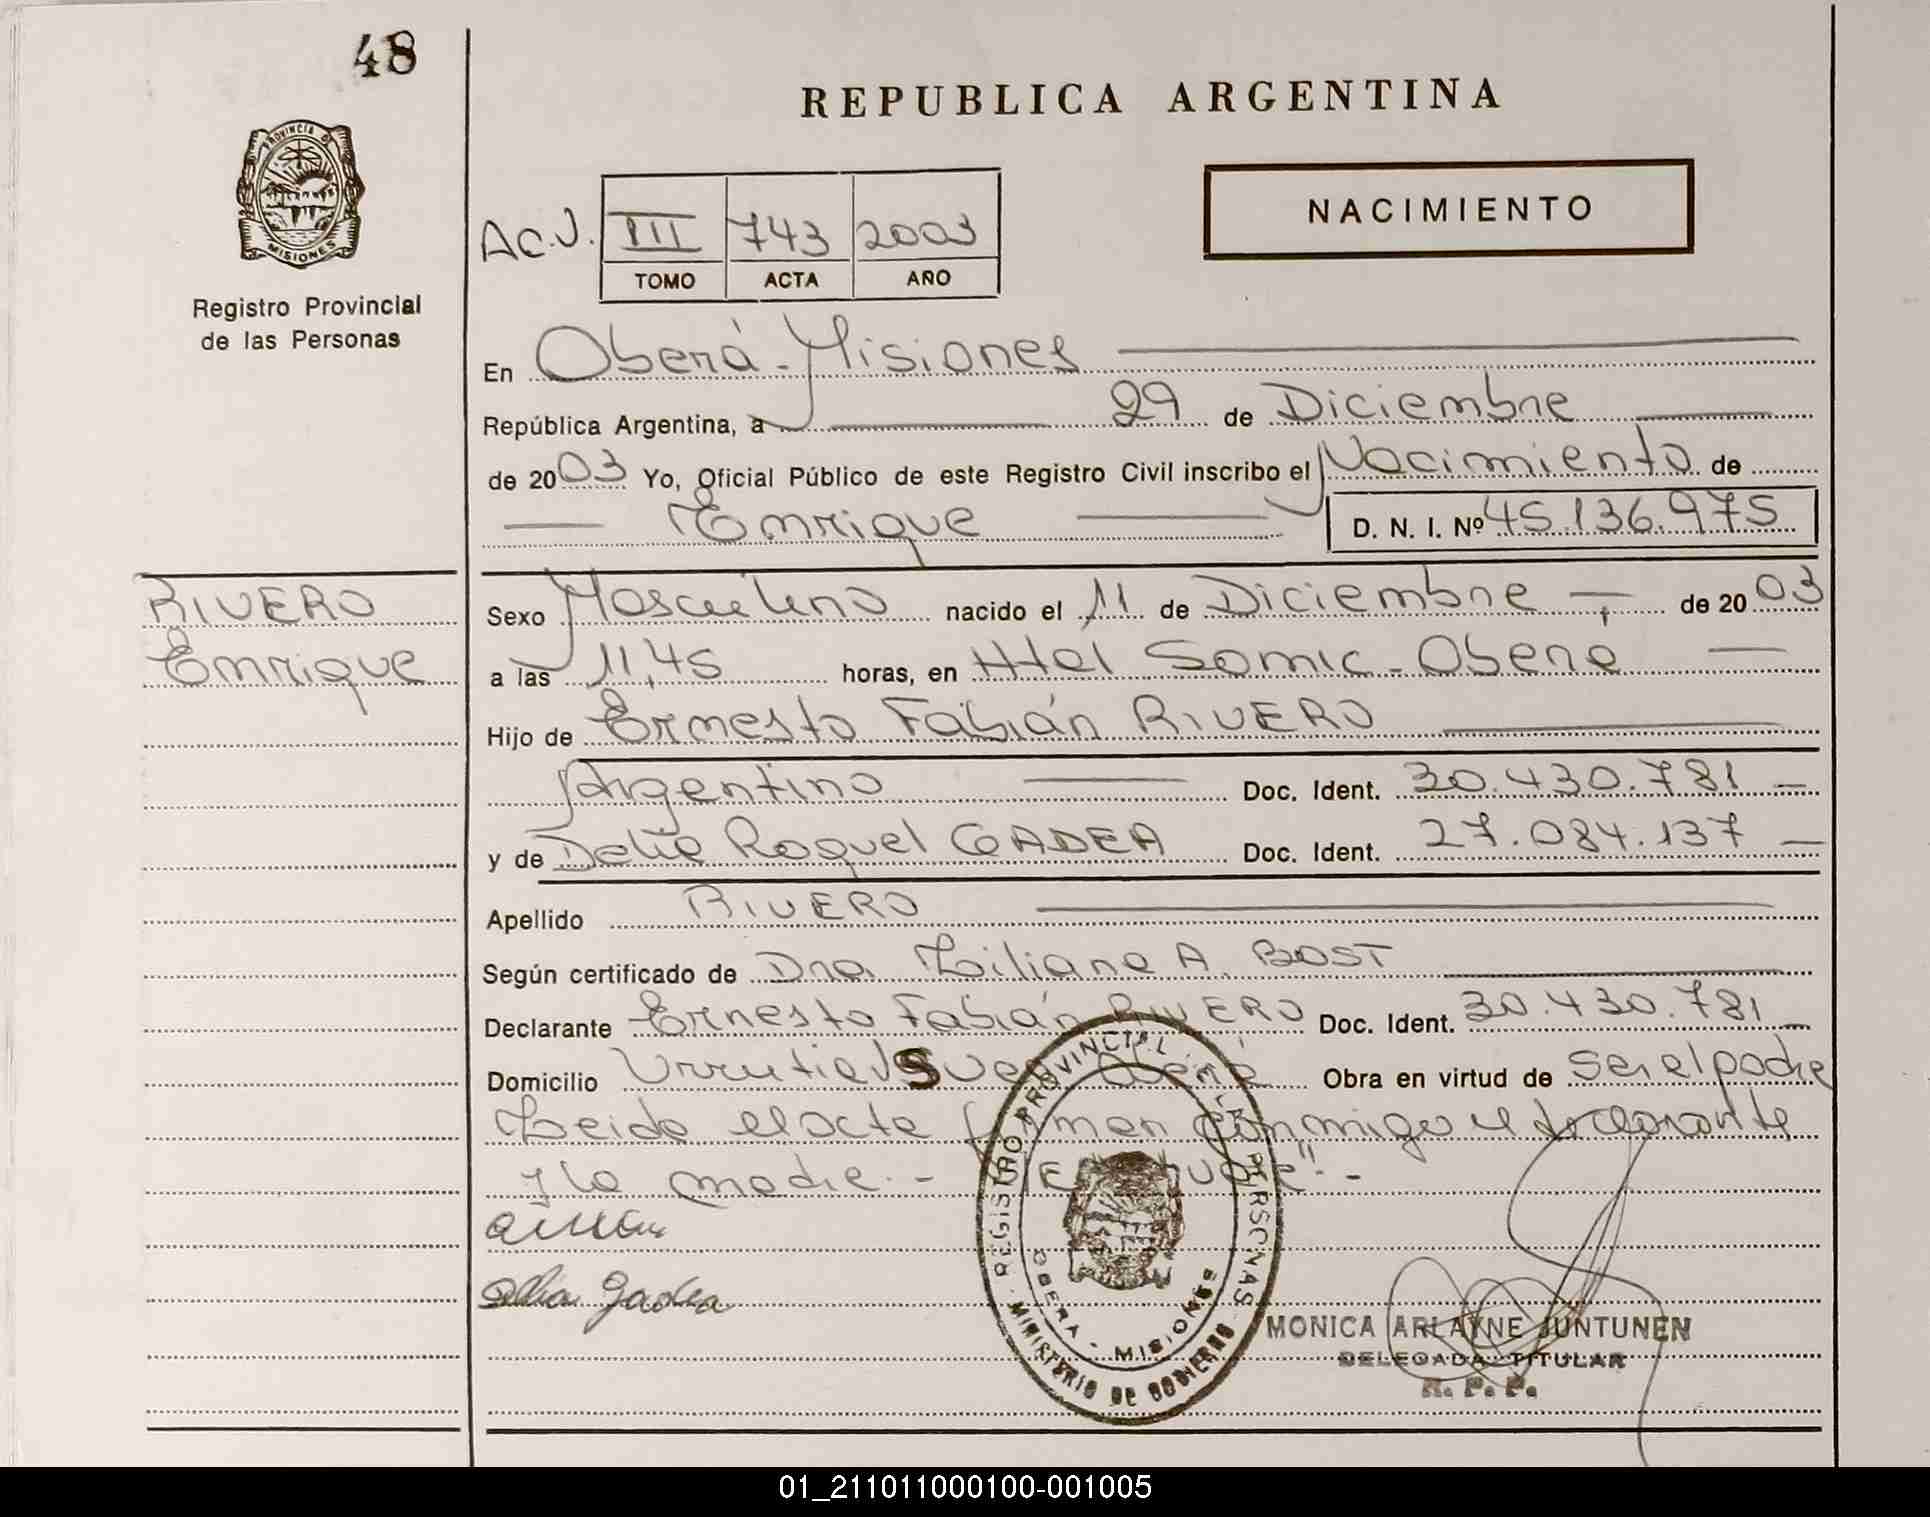 48
REPUBLICA ARGENTINA
PROVINCIA DE
MISIONES
Registro Provincial
de las Personas
NACIMIENTO
Ac.J. III 743 2003
TOMO ACTA AÑO
En Oberá - Misiones
República Argentina, a 29 de Diciembre
de 2003 Yo, Oficial Público de este Registro Civil inscribo el Nacimiento de
Enrique D. N. I. Nº 45.136.975
RIVERO
Enrique
Sexo Masculino nacido el 11 de Diciembre de 2003
a las 11,45 horas, en Htal Samic - Oberá
Hijo de Ernesto Fabián RIVERO
Argentino Doc. Ident. 30.430.781
y de Delia Raquel GADEA Doc. Ident. 27.084.137
Apellido RIVERO
Según certificado de Dra. Liliana A. BOST
Declarante Ernesto Fabián RIVERO Doc. Ident. 30.430.781
Domicilio Oberá Obra en virtud de ser el padre
Leida el acta firman conmigo el declarante
y la madre. -
Delia Gadea
REGISTRO PROVINCIAL DE LAS PERSONAS
OBERA - MISIONES
MINISTERIO DE GOBIERNO
MONICA ARLAYNE JUNTUNEN
DELEGADA TITULAR
R. P. P.
01_211011000100-001005